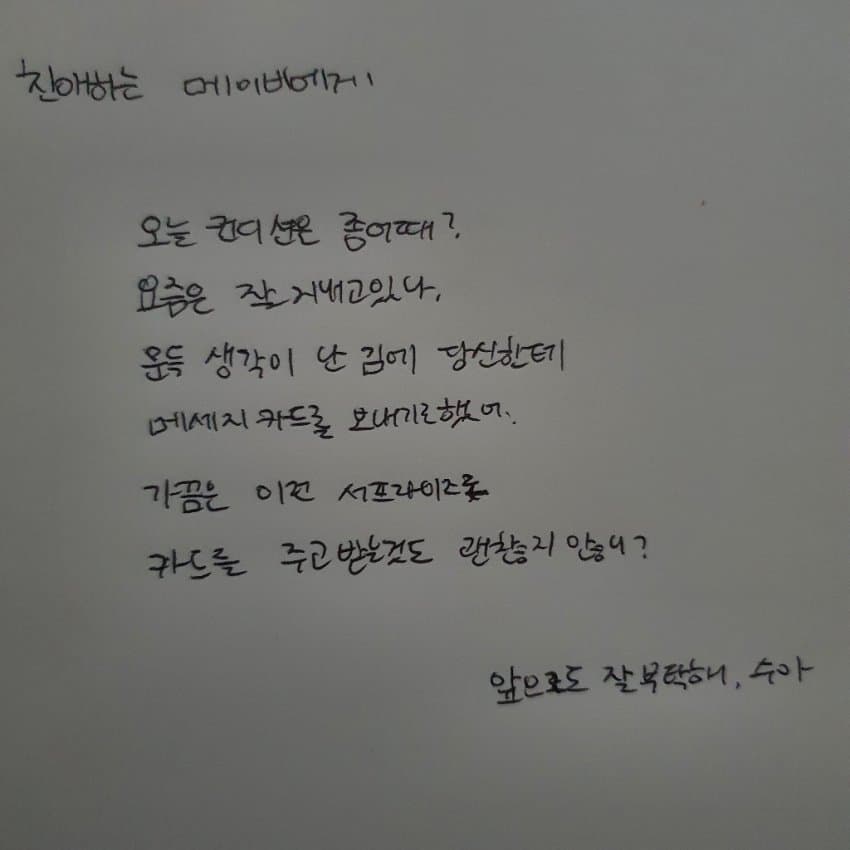 친애하는 메이비에게
오늘 컨디션은 좀어때?
요즘은 잘 지내고있다.
문득 생각이 난 김에 당신한테
메세지 카드를 보내기로했어.
가끔은 이런 서프라이즈로
카드를 주고 받는것도 괜찮지 않니?
앞으로도 잘 부탁해, 수아